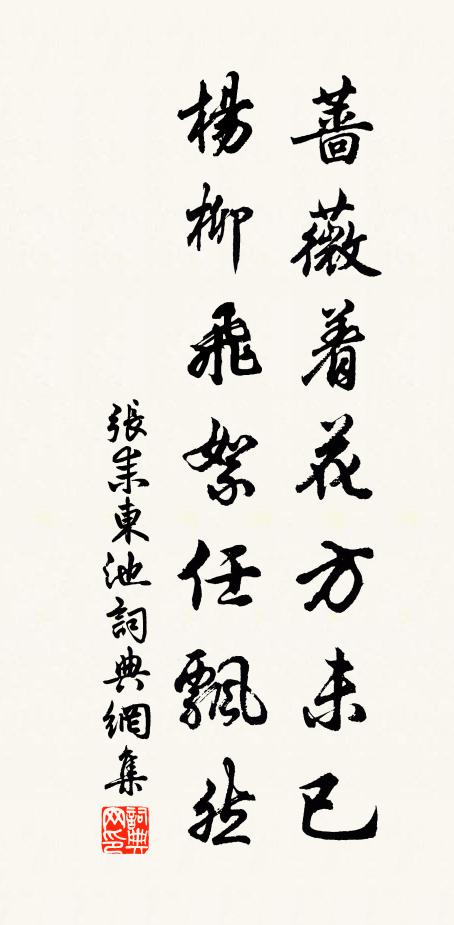 薔薇着花方未已
楊柳飛絮任飄然
張耒東池詞典網集
詞典网印